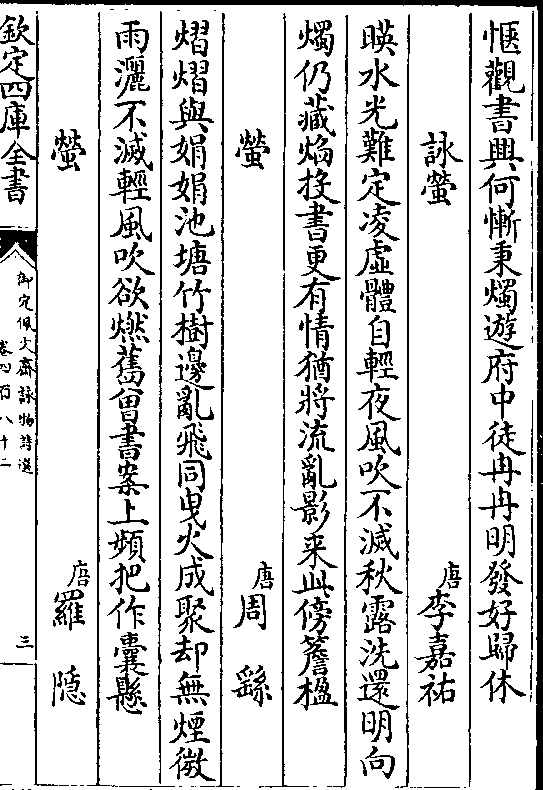 愜觀書興何慚秉燭遊府中徒冉冉明發好歸休
詠螢 唐 李嘉祐
暎水光難定凌虛體自輕夜風吹不滅秋露洗還明向
燭仍藏焰投書更有情猶將流亂影来此傍簷楹
螢 唐 周繇
熠熠與娟娟池塘竹樹邊亂飛同曵火成聚却無煙微
雨灑不滅輕風吹欲燃舊曾書案上頻把作囊懸
螢 唐 羅隱
欽定四庫全書
御定佩文齋詠物詩選
卷四百八十二
三